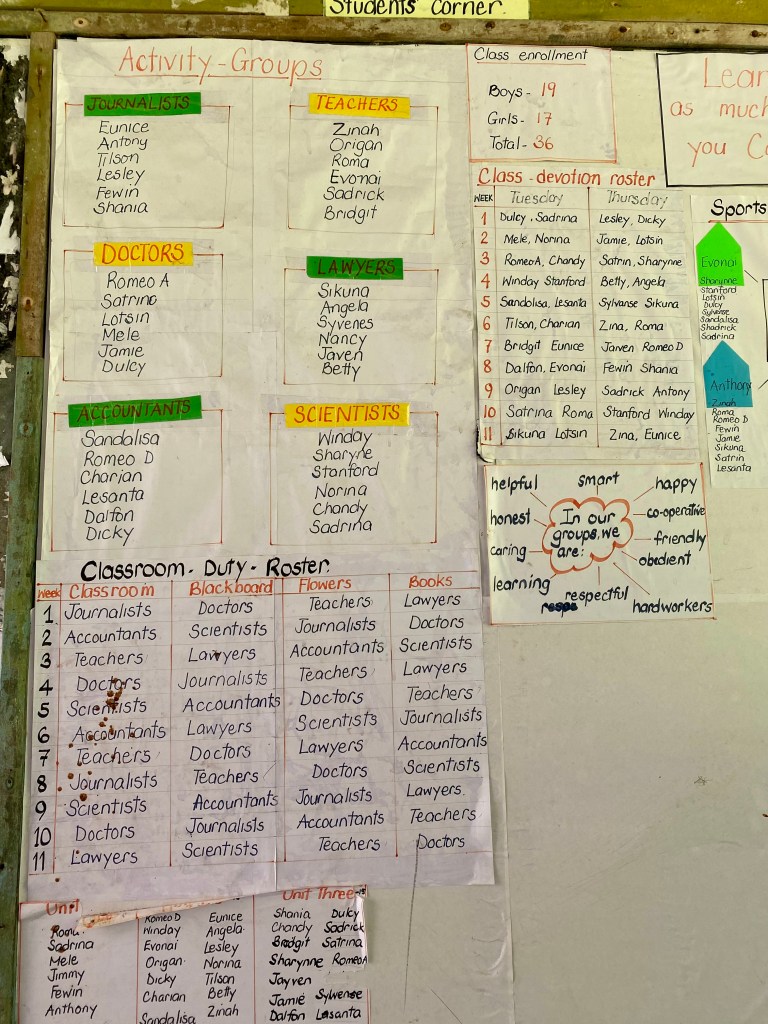 Students' Corner.
Activity-Groups
JOURNALISTS
Eunice
Antony
Tilson
Lesley
Fewin
Shania
TEACHERS
Zinah
Origan
Roma
Evonai
Sadrick
Bridgit
DOCTORS
Romeo A
Satrina
Lotsin
Mele
Jamie
Dulcy
LAWYERS
Sikuna
Angela
Syvenes
Nancy
Javen
Betty
ACCOUNTANTS
Sandalisa
Romeo D
Charian
Lesanta
Dalfon
Dicky
SCIENTISTS
Winday
Sharyne
Stanford
Norina
Chandy
Sadrina
Classroom - Duty - Roster.
Week Classroom Blackboard Flowers Books
1 Journalists Doctors Teachers Lawyers
2 Accountants Scientists Journalists Doctors
3 Teachers Lawyers Accountants Scientists
4 Doctors Journalists Teachers Lawyers
5 Scientists Accountants Doctors Teachers
6 Accountants Lawyers Scientists Journalists
7 Teachers Doctors Lawyers Accountants
8 Journalists Teachers Doctors Scientists
9 Scientists Accountants Journalists Lawyers.
10 Doctors Journalists Accountants Teachers
11 Lawyers Scientists Teachers Doctors
Unit
Roma
Sadrina
Mele
Jimmy
Fewin
Anthony
Romeo D Eunice
Winday Angela
Evonai Lesley
Origan Norina
Dicky Tilson
Charian Betty
Sandalisa Zinah
Unit Three
Shania Dulcy
Chandy Sadrick
Bridgit Satrina
Sharynne RomeoA
Jayven
Jamie Sylwense
Dalfon Lesanta
Class enrollment
Boys - 19
Girls - 17
Total - 36
Class - devotion roster
WEEK Tuesday Thursday
1 Dulcy, Sadrina Lesley, Dicky
2 Mele, Norina Jamie, Lotsin
3 RomeoA, Chandy Satrin, Sharynne
4 Winday Stanford Betty, Angela
5 Sandalisa, Lesanta Sylvanse Sikuna
6 Tilson, Charian Zina, Roma
7 Bridgit Eunice Jarven Romeo D
8 Dalfon, Evonai Fewin Shania
9 Origan Lesley Sadrick Antony
10 Satrina Roma Stanford Winday
11 Sikuna Lotsin Zina, Eunice
helpful
smart
happy
honest
co-operative
caring
friendly
obedient
learning
respectful
hardworkers
In our
groups, we
are:
as much
you
Sports
Evonai
Sharynne
Stanford
Lotsin
Dulcy
Sylvense
Sandalisa
Shadrick
Sadrina
Anthony
Zinah
Roma
Romeo D
Fewin
Jamie
Sikuna
Satrin
Lesanta